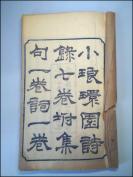 小琅環園詩
錄七卷坿集
句一卷詞一卷